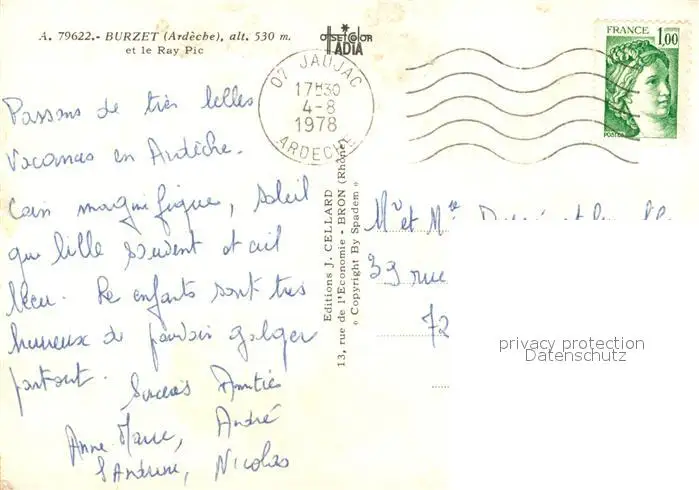 A. 79622.- BURZET (Ardèche), alt. 530 m.
et le Ray Pic
OFFSET COLOR
IADIA
FRANCE 1,00
POSTES
07 JAUJAC
17H30
4-8
1978
ARDECHE
Passons de très belles
vacances en Ardèche.
Coin magnifique, soleil
qui brille souvent et ciel
bleu. Les enfants sont très
heureux de pouvoir galoper
partout.
Sincères Amitiés
Anne Marie, André
Sandrine, Nicolas
Editions J. CELLARD
13, rue de l'Economie - BRON (Rhône)
« Copyright By Spadem »
Mr et Mme
39 rue
72
privacy protection
Datenschutz